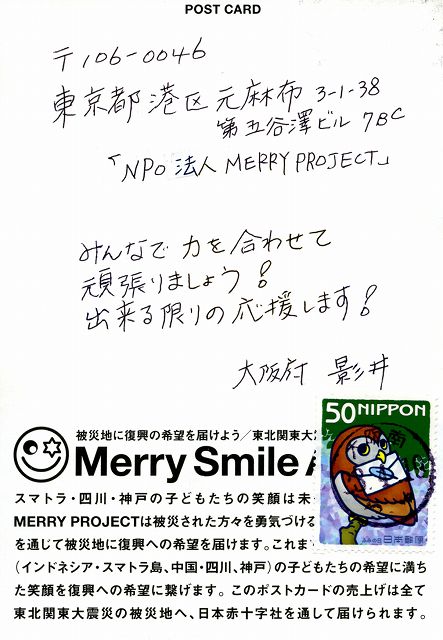 POST CARD
〒106-0046
東京都港区元麻布 3-1-38
第五谷澤ビル 7BC
「NPO 法人 MERRY PROJECT」
みんなで 力を合わせて
頑張りましょう!
出来る限りの応援します!
大阪府 影井
50 NIPPON
日本郵便
被災地に復興の希望を届けよう/東北関東大
Merry Smile A
スマトラ・四川・神戸の子どもたちの笑顔は未
MERRY PROJECTは被災された方々を勇気づける
を通じて被災地に復興への希望を届けます。これま
(インドネシア・スマトラ島、中国・四川、神戸)の子どもたちの希望に満ち
た笑顔を復興への希望に繋げます。このポストカードの売上げは全て
東北関東大震災の被災地へ、日本赤十字社を通して届けられます。